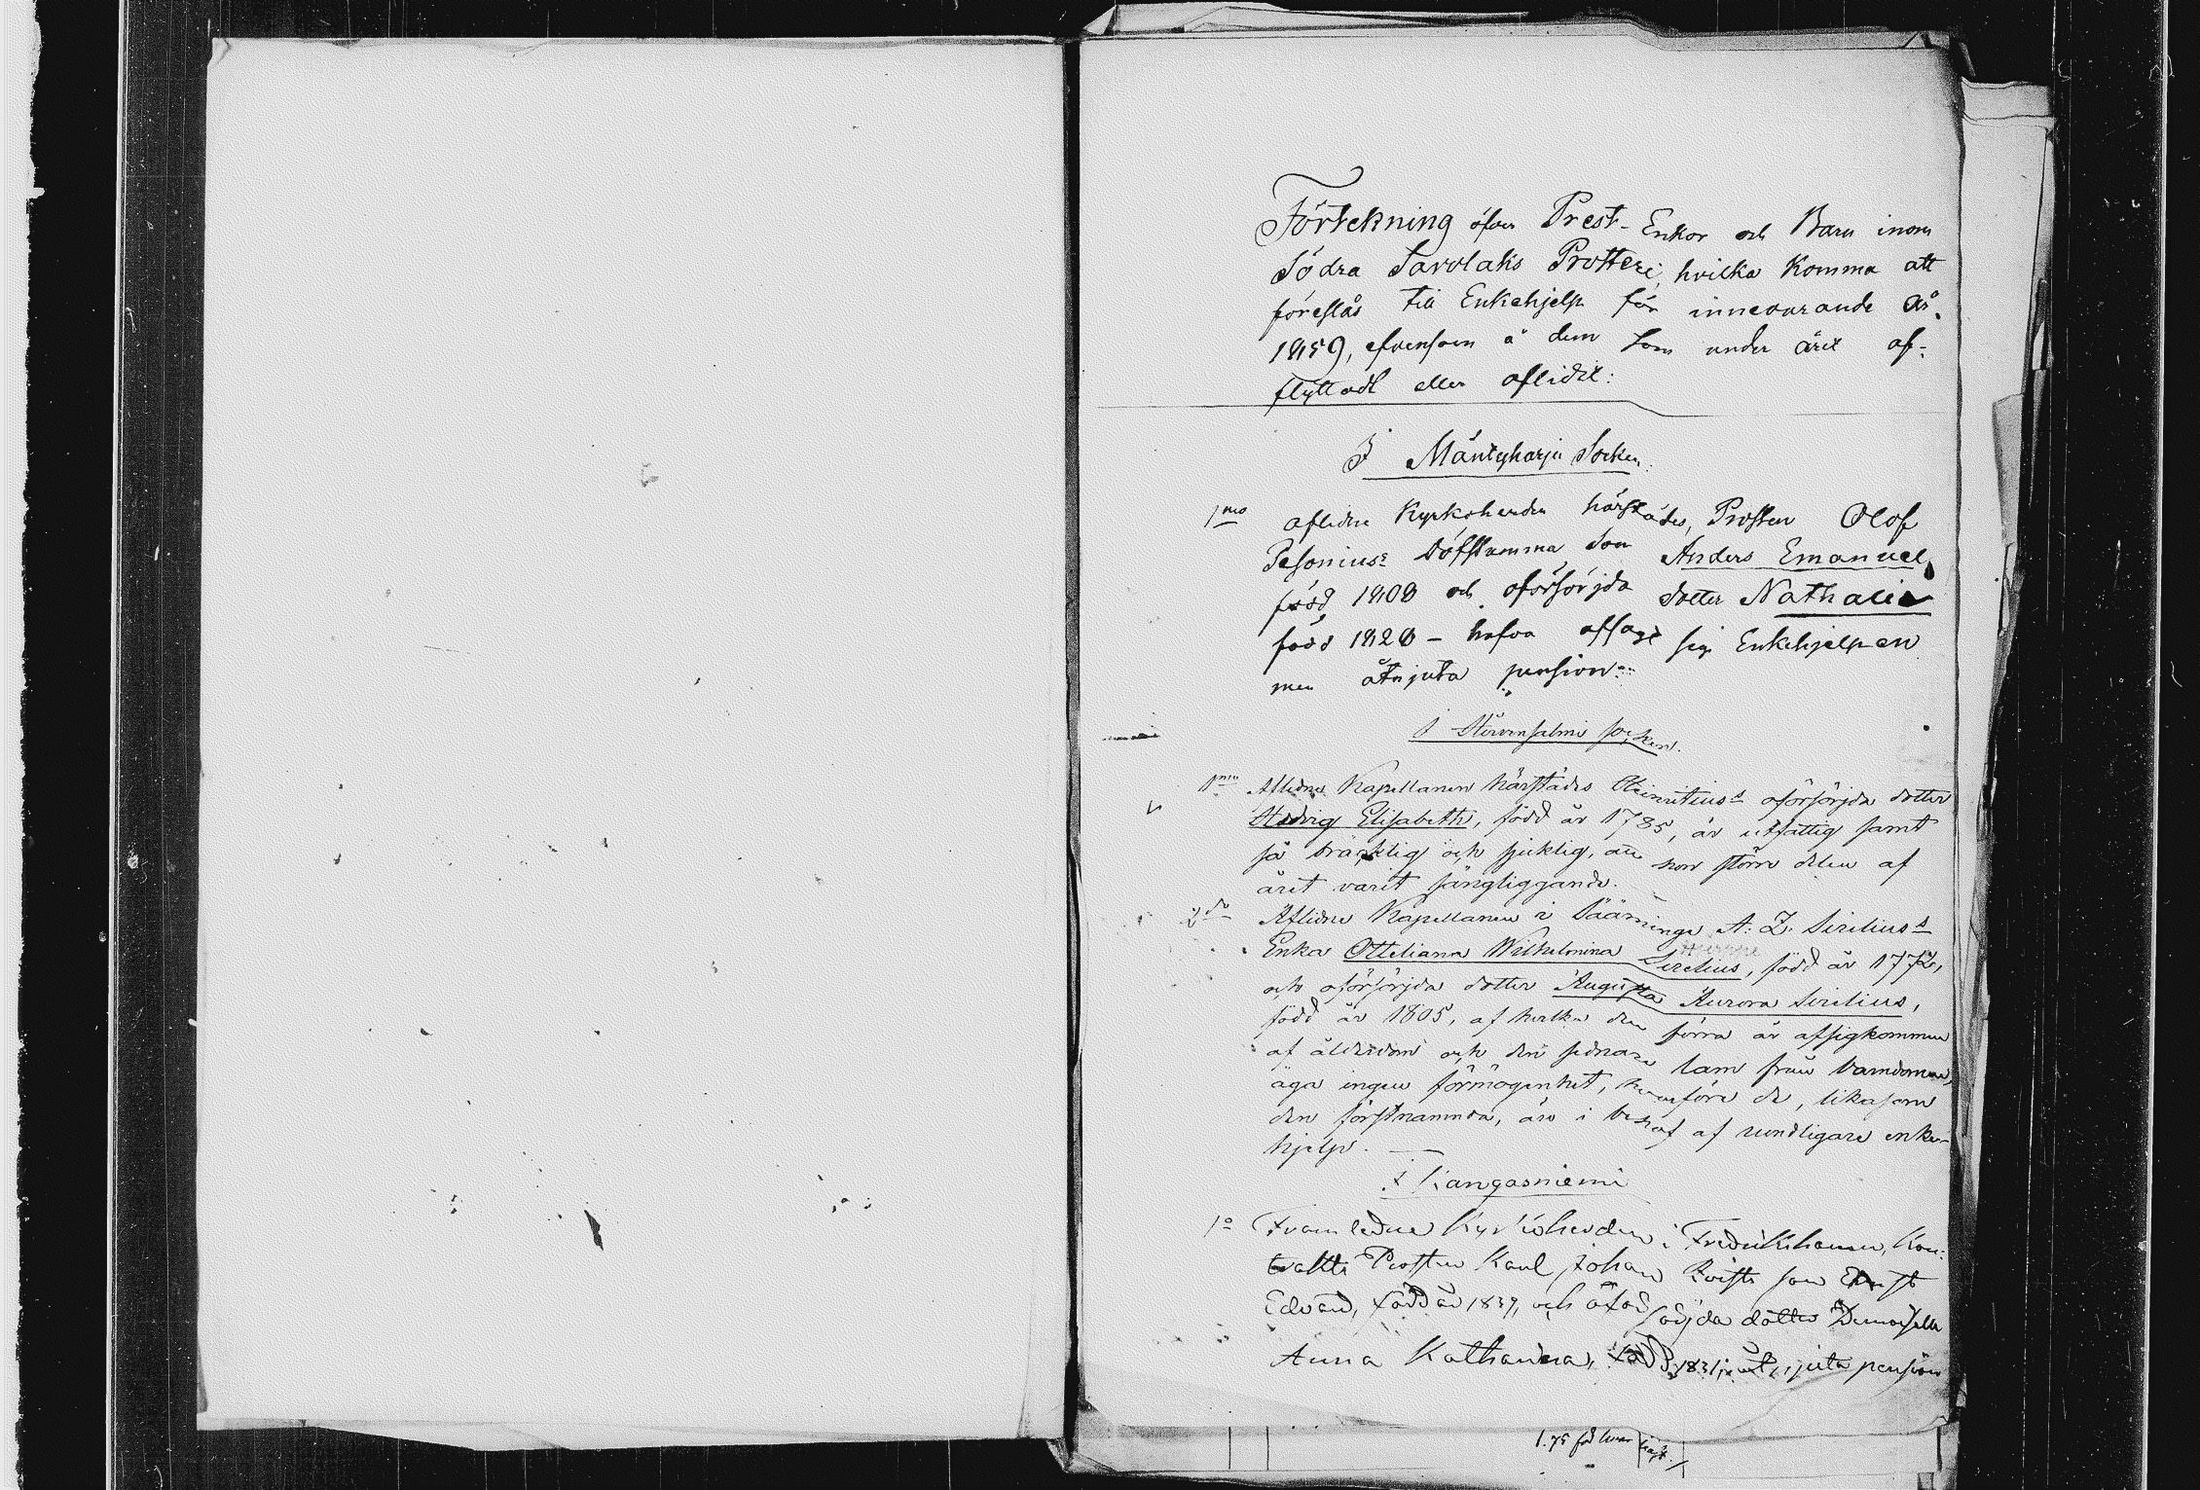 Förtekning öfver Prest-Enkor och Barn inom
Södra Savolaks Prosteri, hvilka komma att
föreslås till Enkehjelp för innevarande år
1859, äfvensom å dem som under året af-
flyttadt eller aflidit:
I Mäntyharju Socken.
1mo aflidne Kyrkoherden härstädes, Prosten Olof
Pesonius's döfstumma Son Anders Emanuel
född 1808 och oförsörjda dotter Nathalia
född 1828 – hafva afsagt sig Enkehjelpen
men åtnjuta pension.
I Hirvensalmi socken.
1mo Aflidne Kapellanen härstädes oförsörjda dotter
Hedvig Elisabeth, född år 1785, är utfattig samt
så bräcklig och sjuklig, att hon större delen af
året varit sängliggande.
2do Aflidne Kapellanen i Sääminge A. Z. Sirelius's
Enka Otteliana Wilhelmina Sirelius, född år 1772,
och oförsörjda dotter Augusta Aurora Sirelius,
född år 1805, af hvilka den förra är afsigkommen
af ålderdom och den sednare lam från barndomen,
äga ingen förmögenhet, hvarföre de, likasom
den förstnämnda, äro i behof af rundligare enke-
hjelp.
I Kangasniemi
1o Framledne Kyrkoherden i Fredrikshamn, Kon-
trakts Prosten Karl Johan son Ernst
Edvard, född år 1839, och oförsörjda dotter Demoiselle
Anna Katharina, född 1831, åtnjuta pension
1.75 för hvar